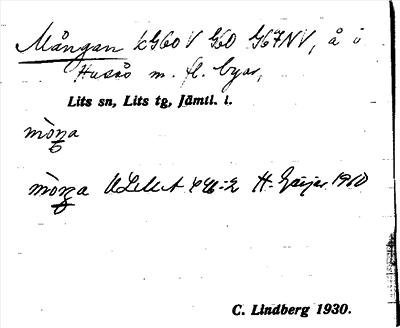 Mångan kG60V G60 G67NV, å i
Husås m. fl. byar,
Lits sn, Lits tg, Jämtl. l.
mòŋa
mòŋa ULMA H. Geijer 1910
C. Lindberg 1930.